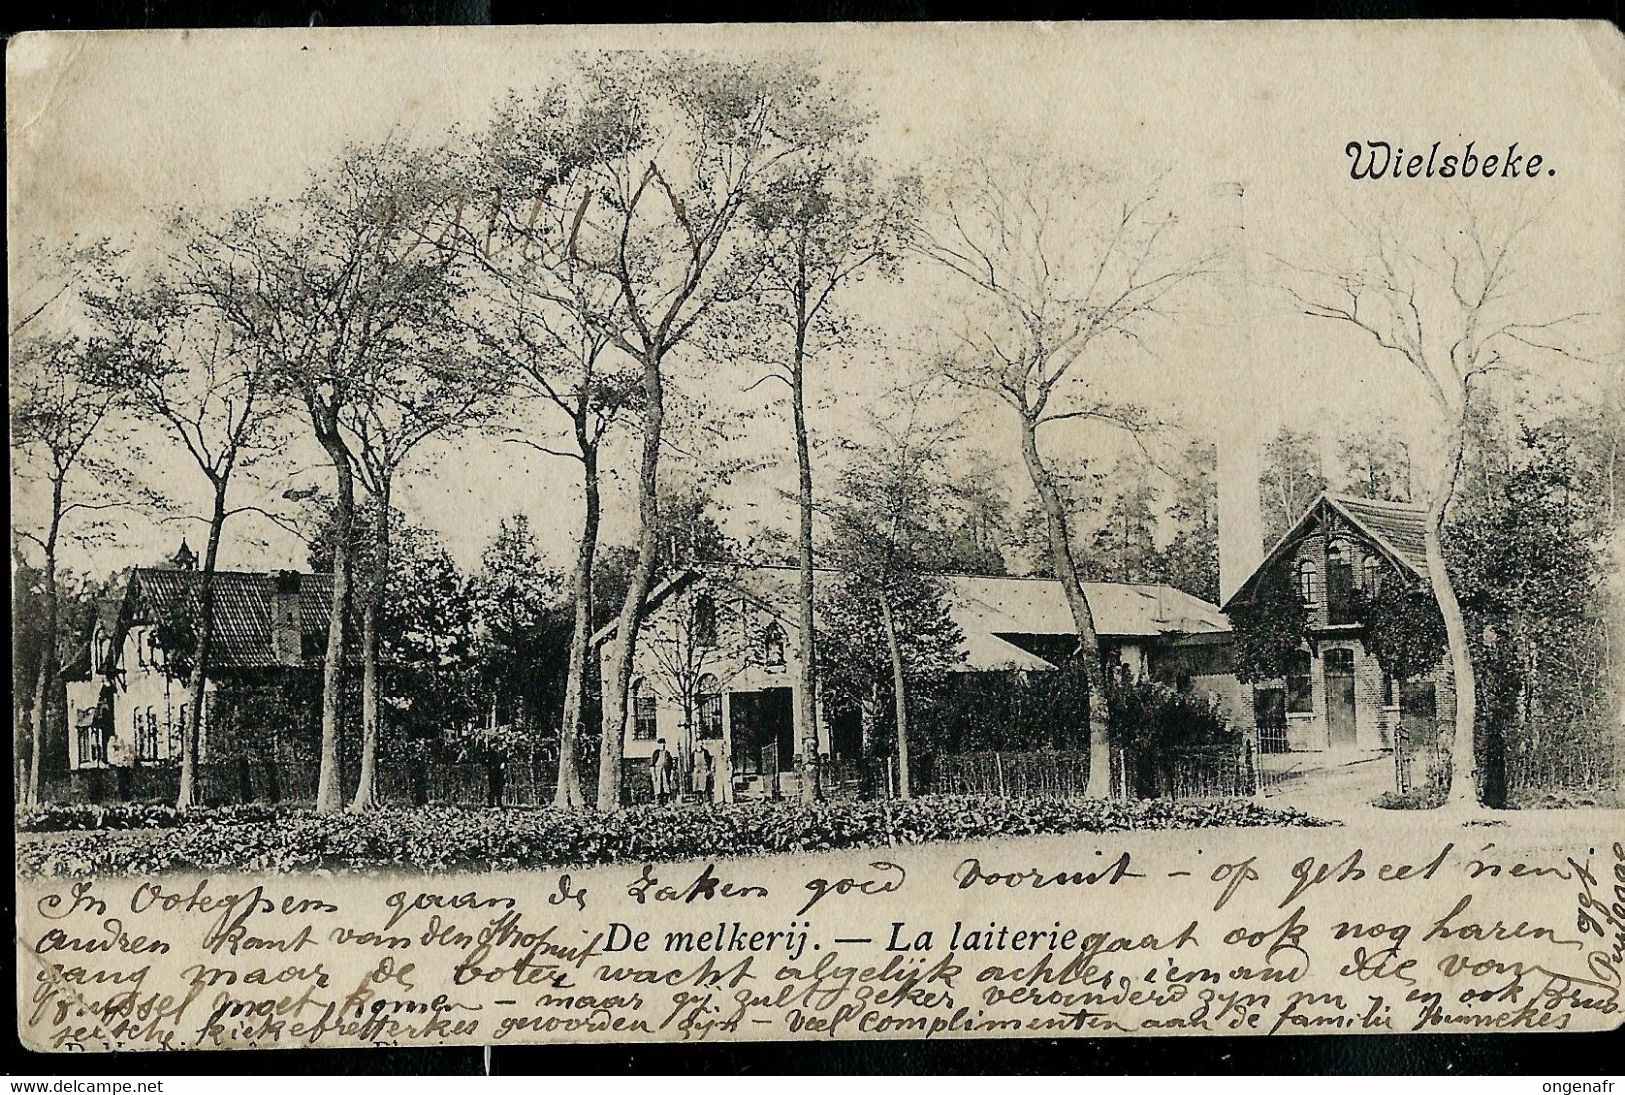 Wielsbeke.
In Ooteghem gaan de zaken goed vooruit – op geheel n'en
andren kant van den De melkerij. — La laiterie gaat ook nog haren
gang maar de boter wacht algelijk achter iemand die van
Brussel moet komen – maar gij zult zeker veranderd zyn nu, en ook Brus
selsche kiekefretterkes geworden zyn – veel complimenten aan de familie
delcampe.net
ongenafr